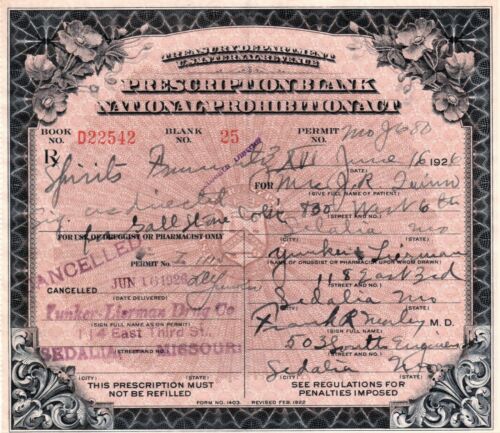 TREASURY DEPARTMENT
U.S. INTERNAL REVENUE
PRESCRIPTION BLANK
NATIONAL PROHIBITION ACT
BOOK NO. D22542 BLANK NO. 25 PERMIT NO. Mo
R Spirits XVI June 16 1926
FOR Mr. J.R.
(FULL NAME OF PATIENT)
as directed 830 West 6th
(STREET AND NO.)
for Gall Stone Colic Sedalia Mo
FOR USE OF DRUGGIST OR PHARMACIST ONLY (CITY) (STATE)
Yunker & Lierman
PERMIT NO. (NAME OF DRUGGIST OR PHARMACIST UPON WHOM DRAWN)
CANCELLED
CANCELLED JUN 16 1926 118 East 3rd
(DATE DELIVERED) (STREET AND NO.)
Yunker-Lierman Drug Co Sedalia Mo
(SIGN FULL NAME AS ON PERMIT) (CITY) (STATE)
East Third St. Frank R M.D.
(STREET AND NO.) (SIGN FULL NAME)
SEDALIA MISSOURI 503 South
(CITY) (STATE) (STREET AND NO.)
Sedalia Mo
(CITY) (STATE)
THIS PRESCRIPTION MUST NOT BE REFILLED
SEE REGULATIONS FOR PENALTIES IMPOSED
FORM NO. 1403. REVISED FEB. 1922